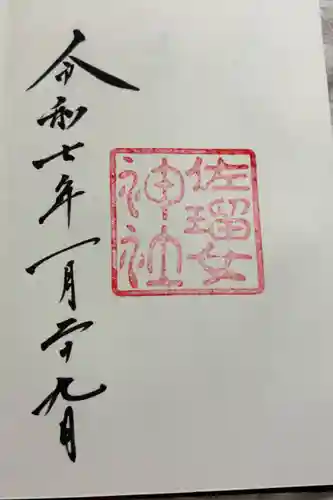 佐瑠女
神社
令和七年一月二十九日